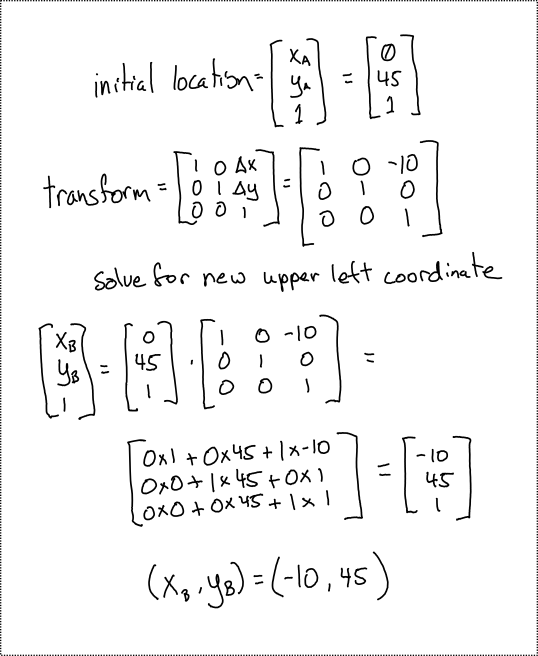 initial location = [x_A y_A 1] = [0 45 1]
transform = [1 0 Δx; 0 1 Δy; 0 0 1] = [1 0 -10; 0 1 0; 0 0 1]
solve for new upper left coordinate
[x_B y_B 1] = [0 45 1] · [1 0 -10; 0 1 0; 0 0 1] =
[0x1 + 0x45 + 1x-10; 0x0 + 1x45 + 0x1; 0x0 + 0x45 + 1x1] = [-10 45 1]
(x_B, y_B) = (-10, 45)